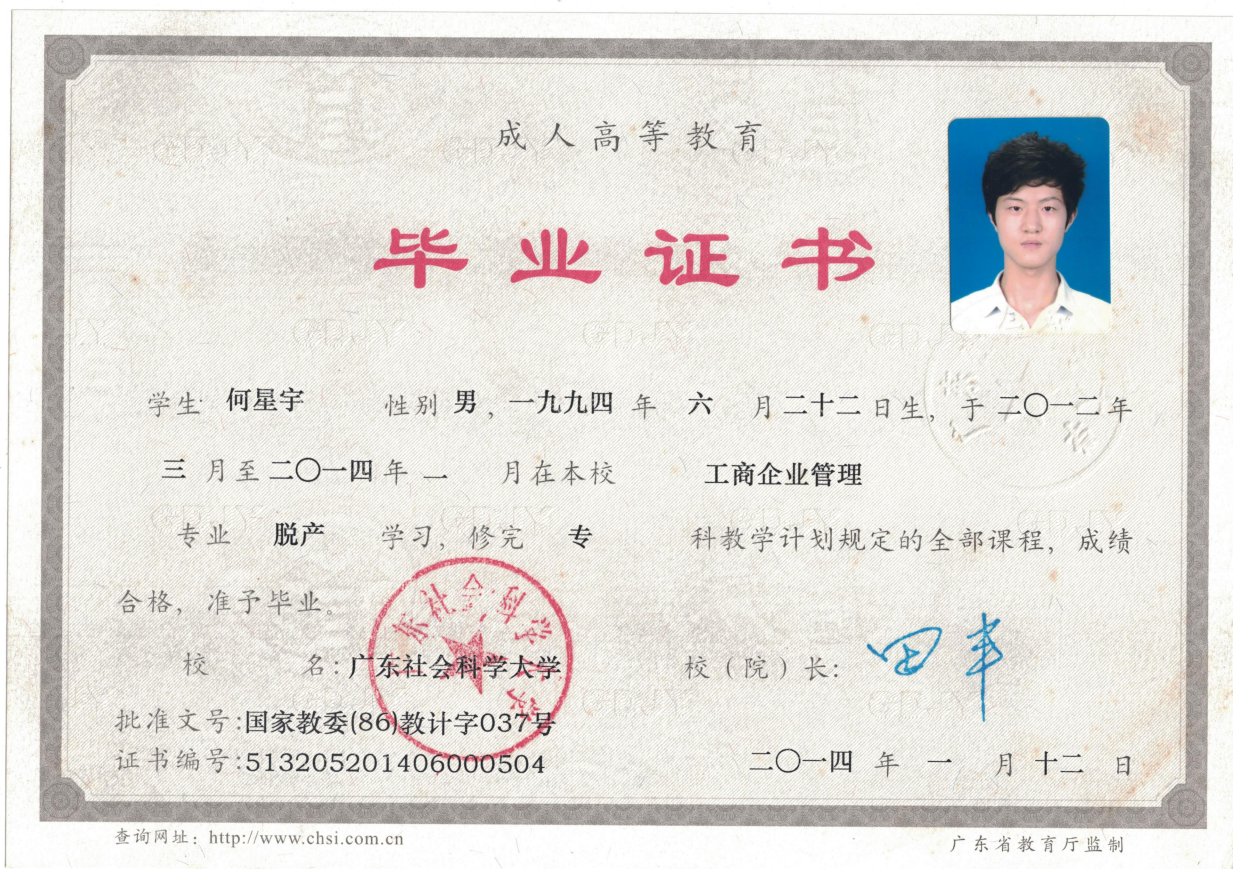 成人高等教育
毕业证书
学生 何星宇 性别 男，一九九四 年 六 月 二十二 日生，于 二〇一二 年
三 月至 二〇一四 年 一 月在本校 工商企业管理
专业 脱产 学习，修完 专 科教学计划规定的全部课程，成绩
合格，准予毕业。
广东社会科学大学
校 名：广东社会科学大学 校（院）长：田丰
批准文号：国家教委(86)教计字037号
证书编号：513205201406000504 二〇一四 年 一 月 十二 日
查询网址：http://www.chsi.com.cn 广东省教育厅监制